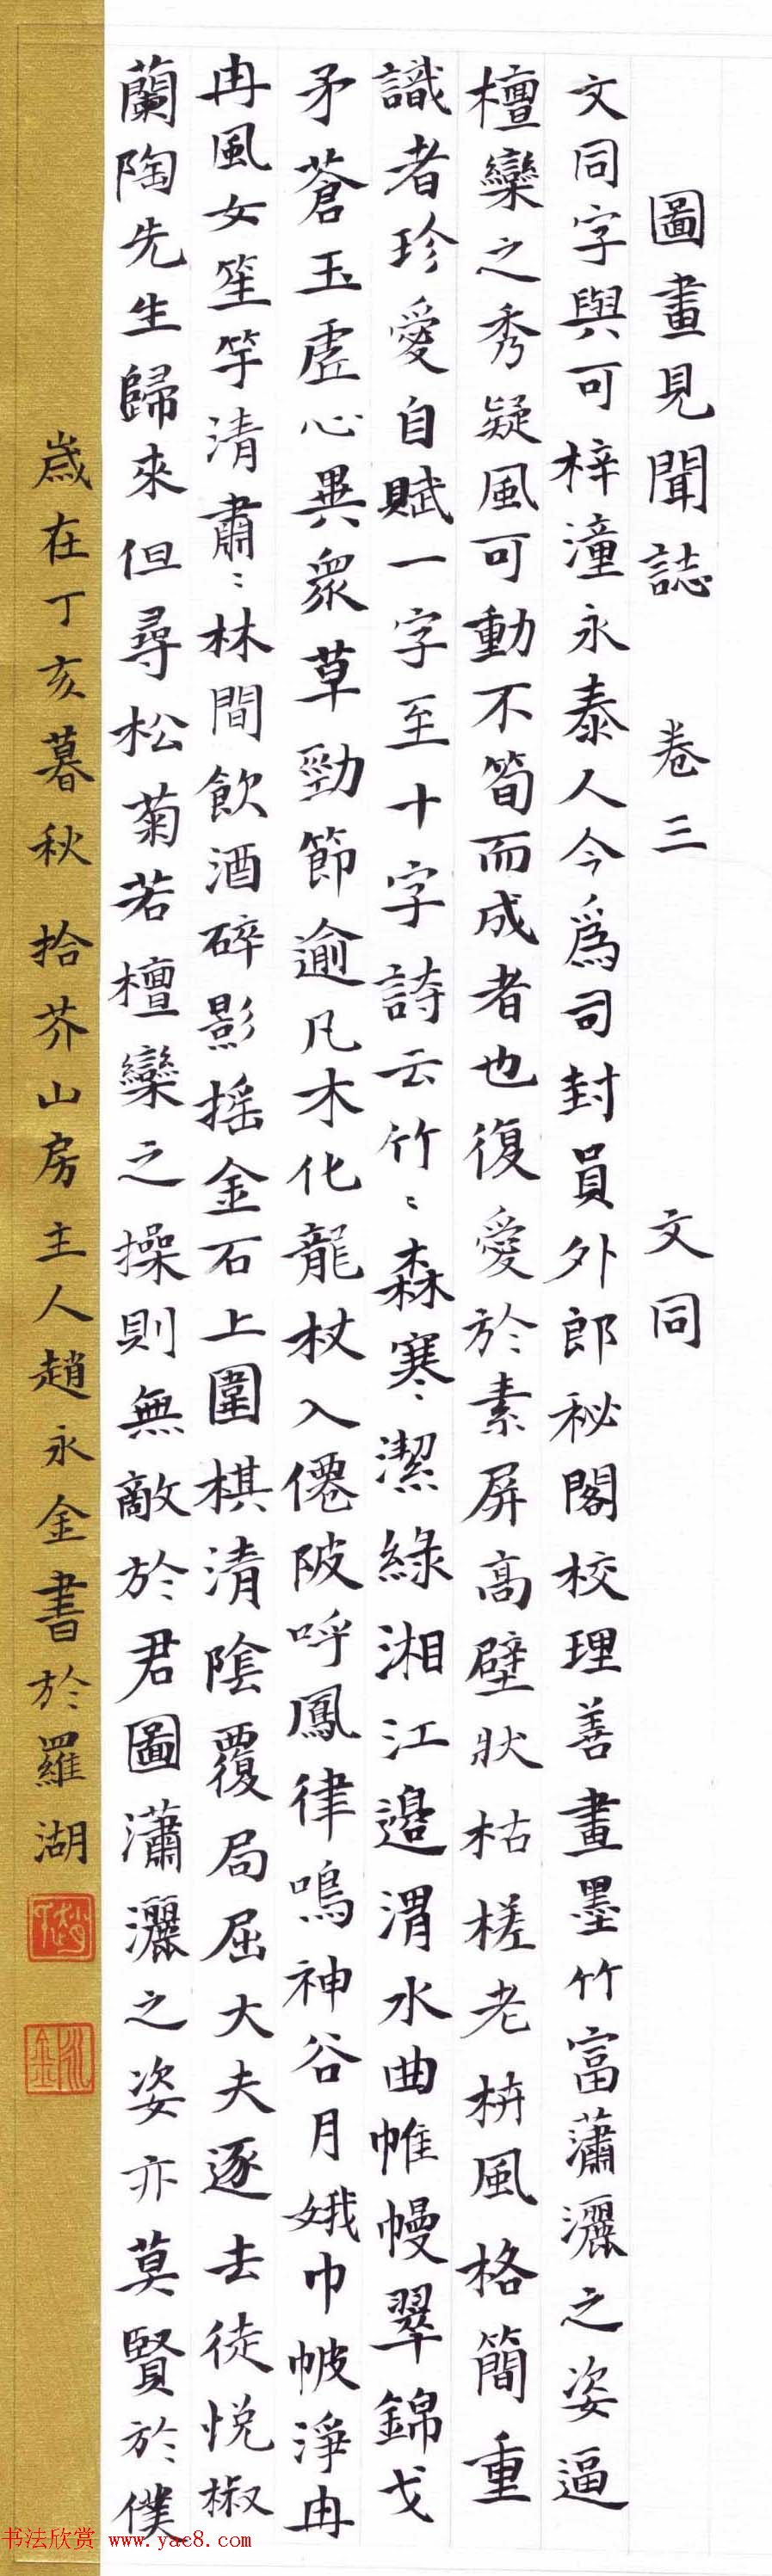 圖畫見聞誌 卷三 文同
文同字與可梓潼永泰人今爲司封員外郎秘閣校理善畫墨竹富瀟灑之姿逼
檀欒之秀疑風可動不筍而成者也復愛於素屏高壁狀枯槎老枿風格簡重
識者珍愛自賦一字至十字詩云竹〻森寒〻潔綠湘江邊渭水曲帷幔翠錦戈
矛蒼玉虛心異衆草勁節逾凡木化龍杖入僊陂呼鳳律鳴神谷月娥巾帔淨冉
冉風女笙竽清肅〻林間飲酒碎影搖金石上圍棋清陰覆局屈大夫逐去徒悅椒
蘭陶先生歸來但尋松菊若檀欒之操則無敵於君圖瀟灑之姿亦莫賢於僕
歲在丁亥暮秋 拾芥山房主人趙永金書於羅湖
永金
书法欣赏 www.yac8.com